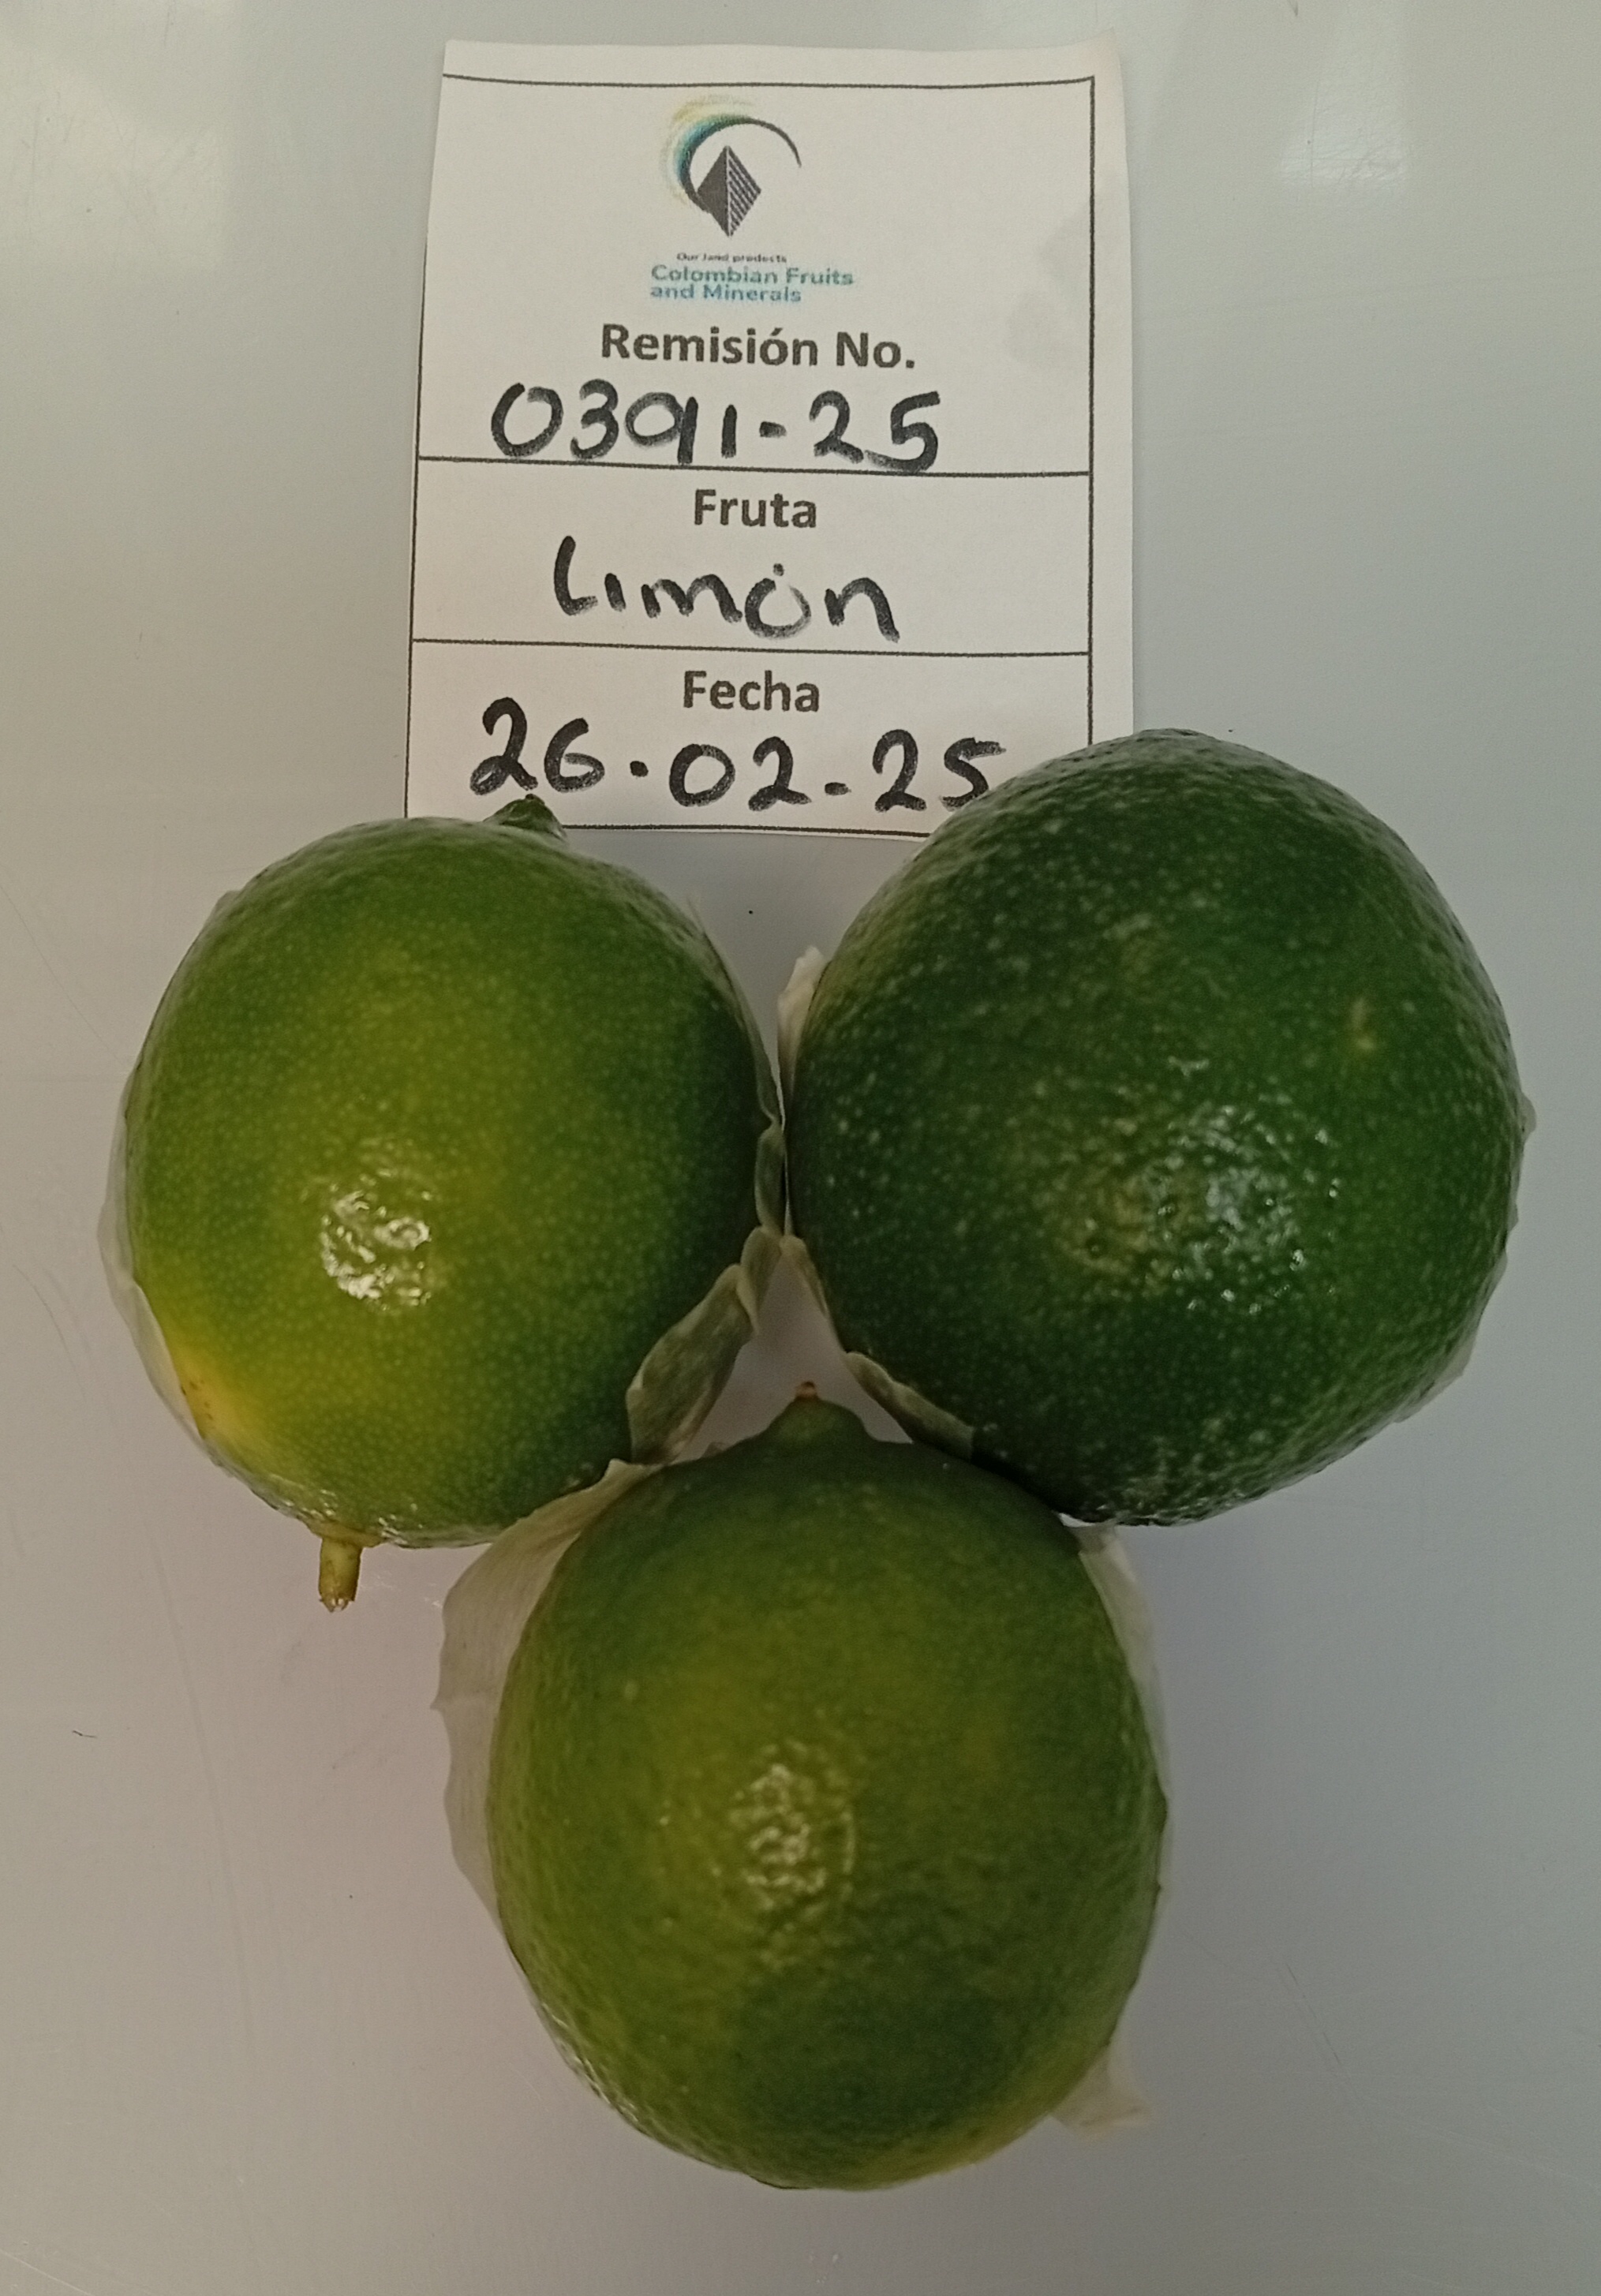 Our land products
Colombian Fruits
and Minerals
Remisión No.
0391-25
Fruta
Limón
Fecha
26.02-25